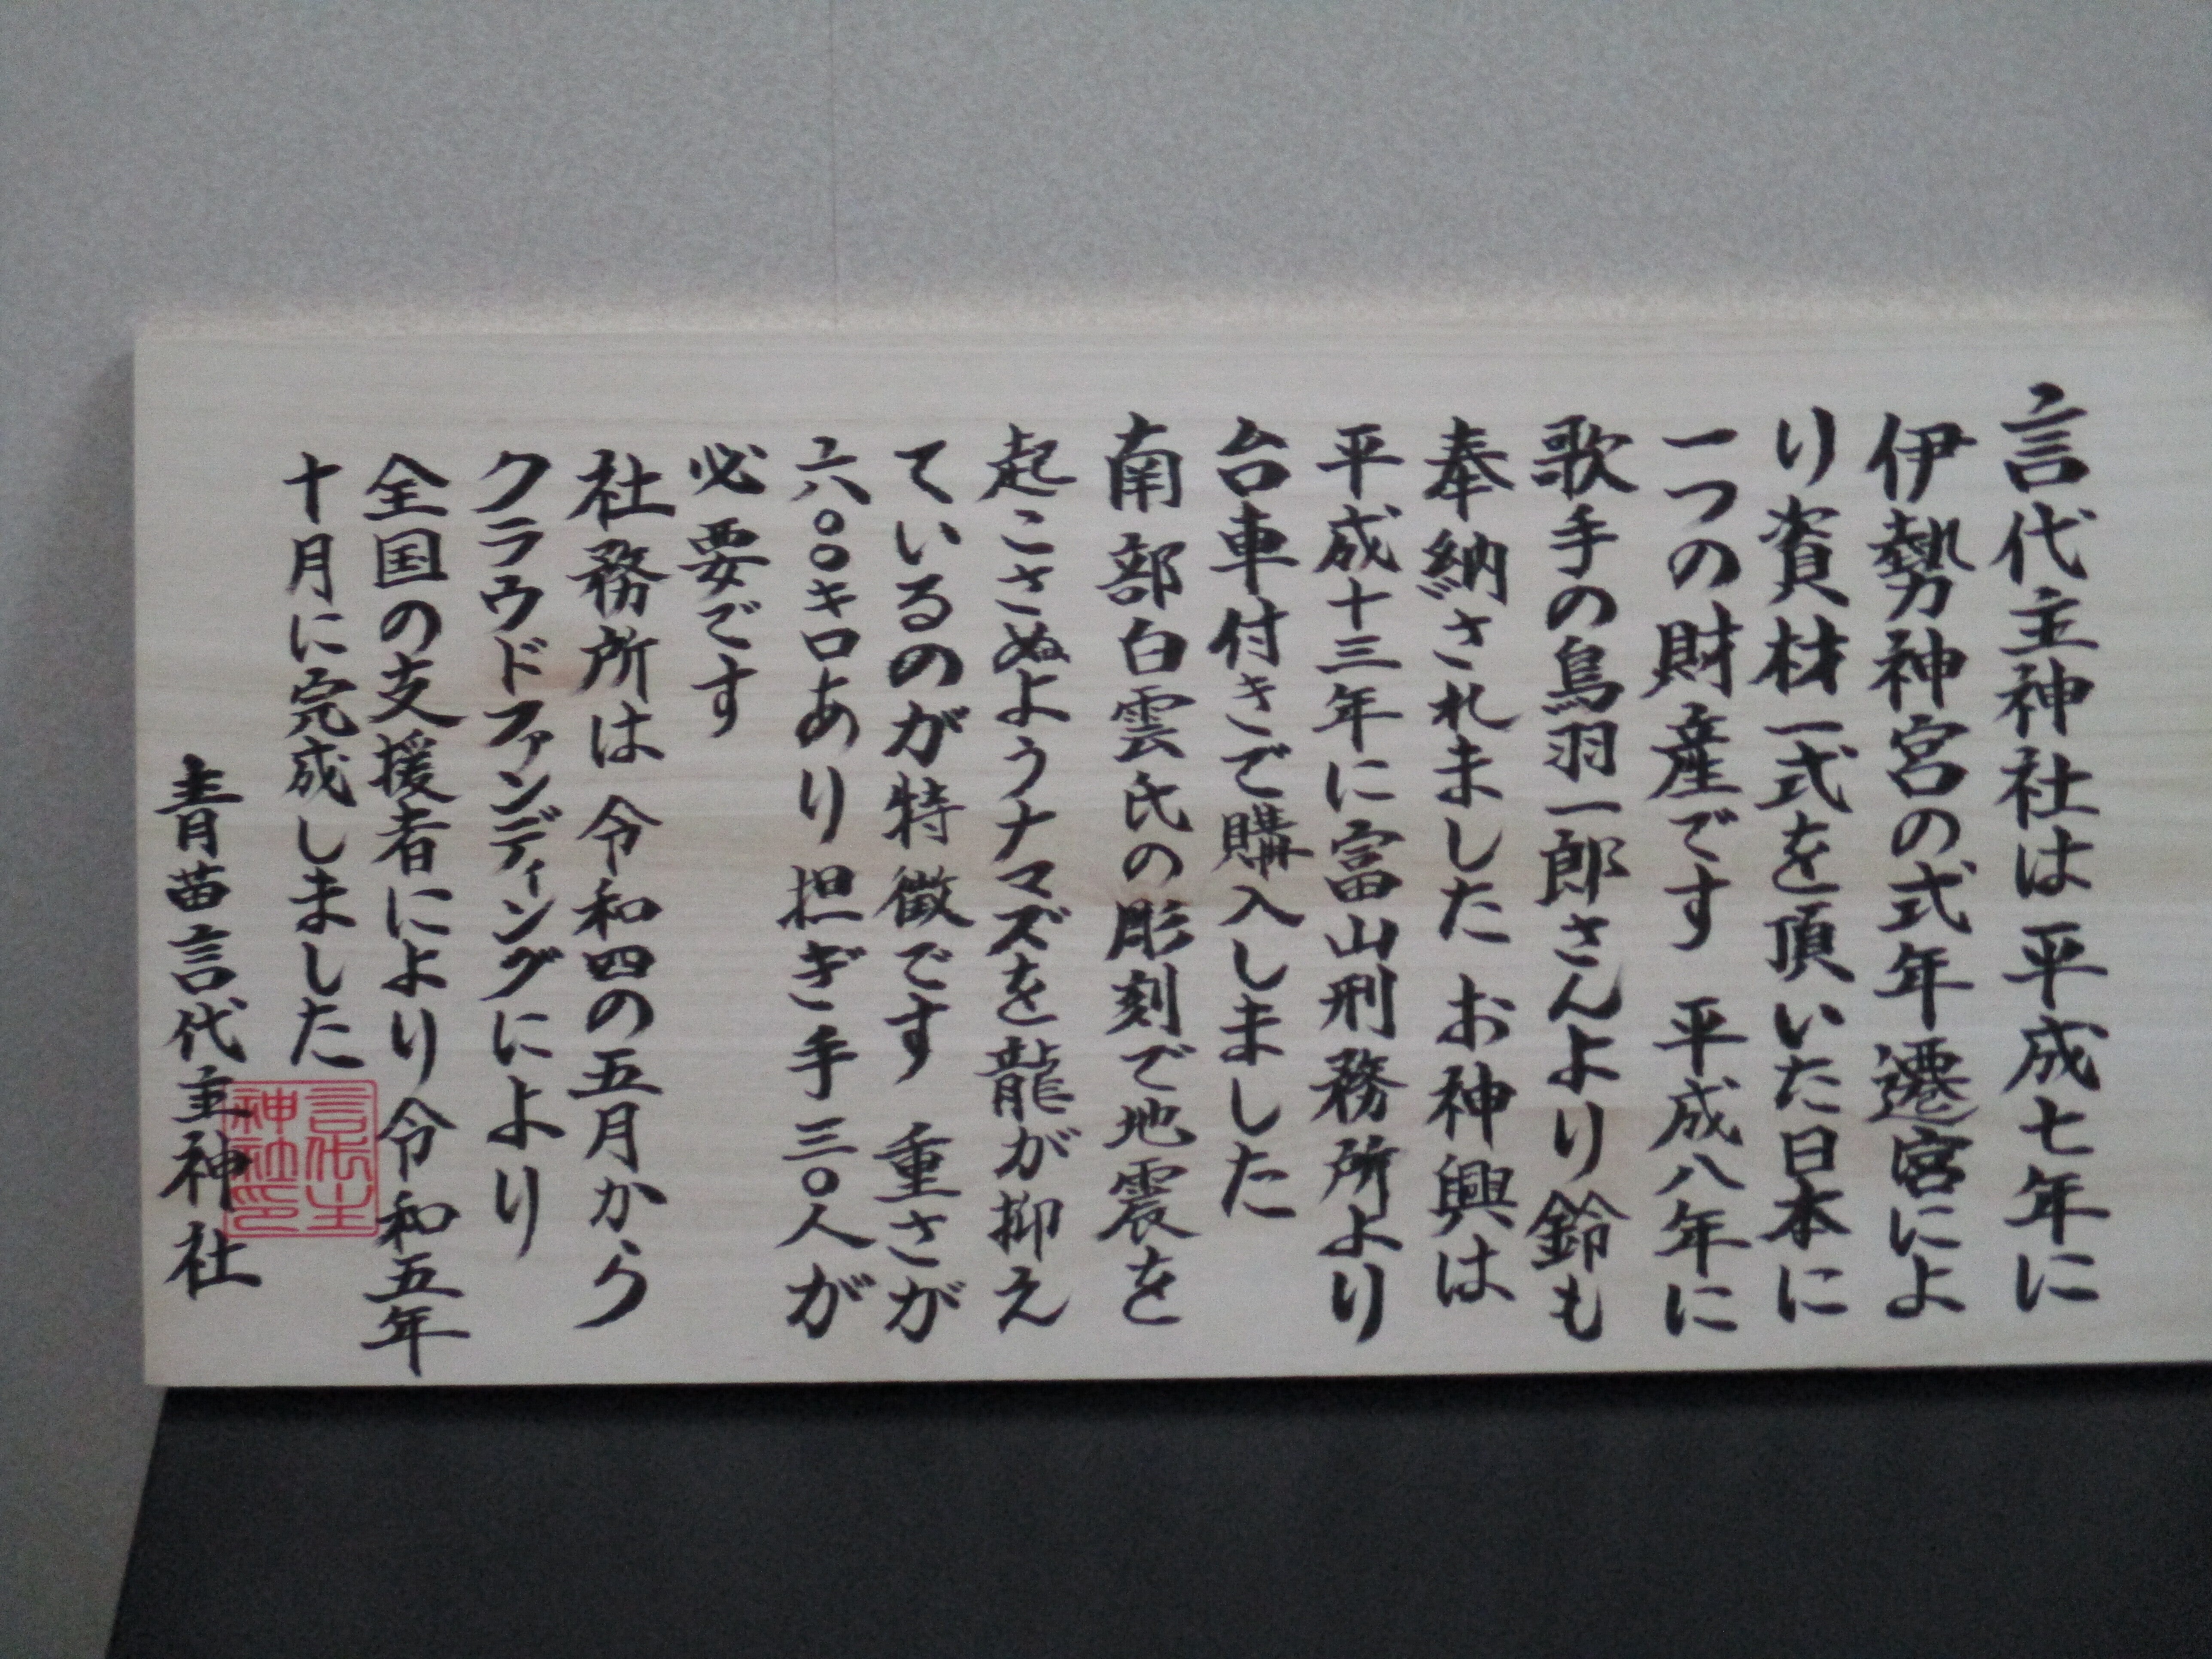 言代主神社は平成七年に
伊勢神宮の式年遷宮によ
り資材一式を頂いた日本に
一つの財産です 平成八年に
歌手の鳥羽一郎さんより鈴も
奉納されました お神興は
平成十三年に富山刑務所より
台車付きで購入しました
南部白雲氏の彫刻で地震を
起こさぬようナマズを龍が抑え
ているのが特徴です 重さが
六〇〇キロあり担ぎ手三〇人が
必要です
社務所は 令和四の五月から
クラウドファンディングにより
全国の支援者により令和五年
十月に完成しました
青苗言代主神社
言代主
神社印